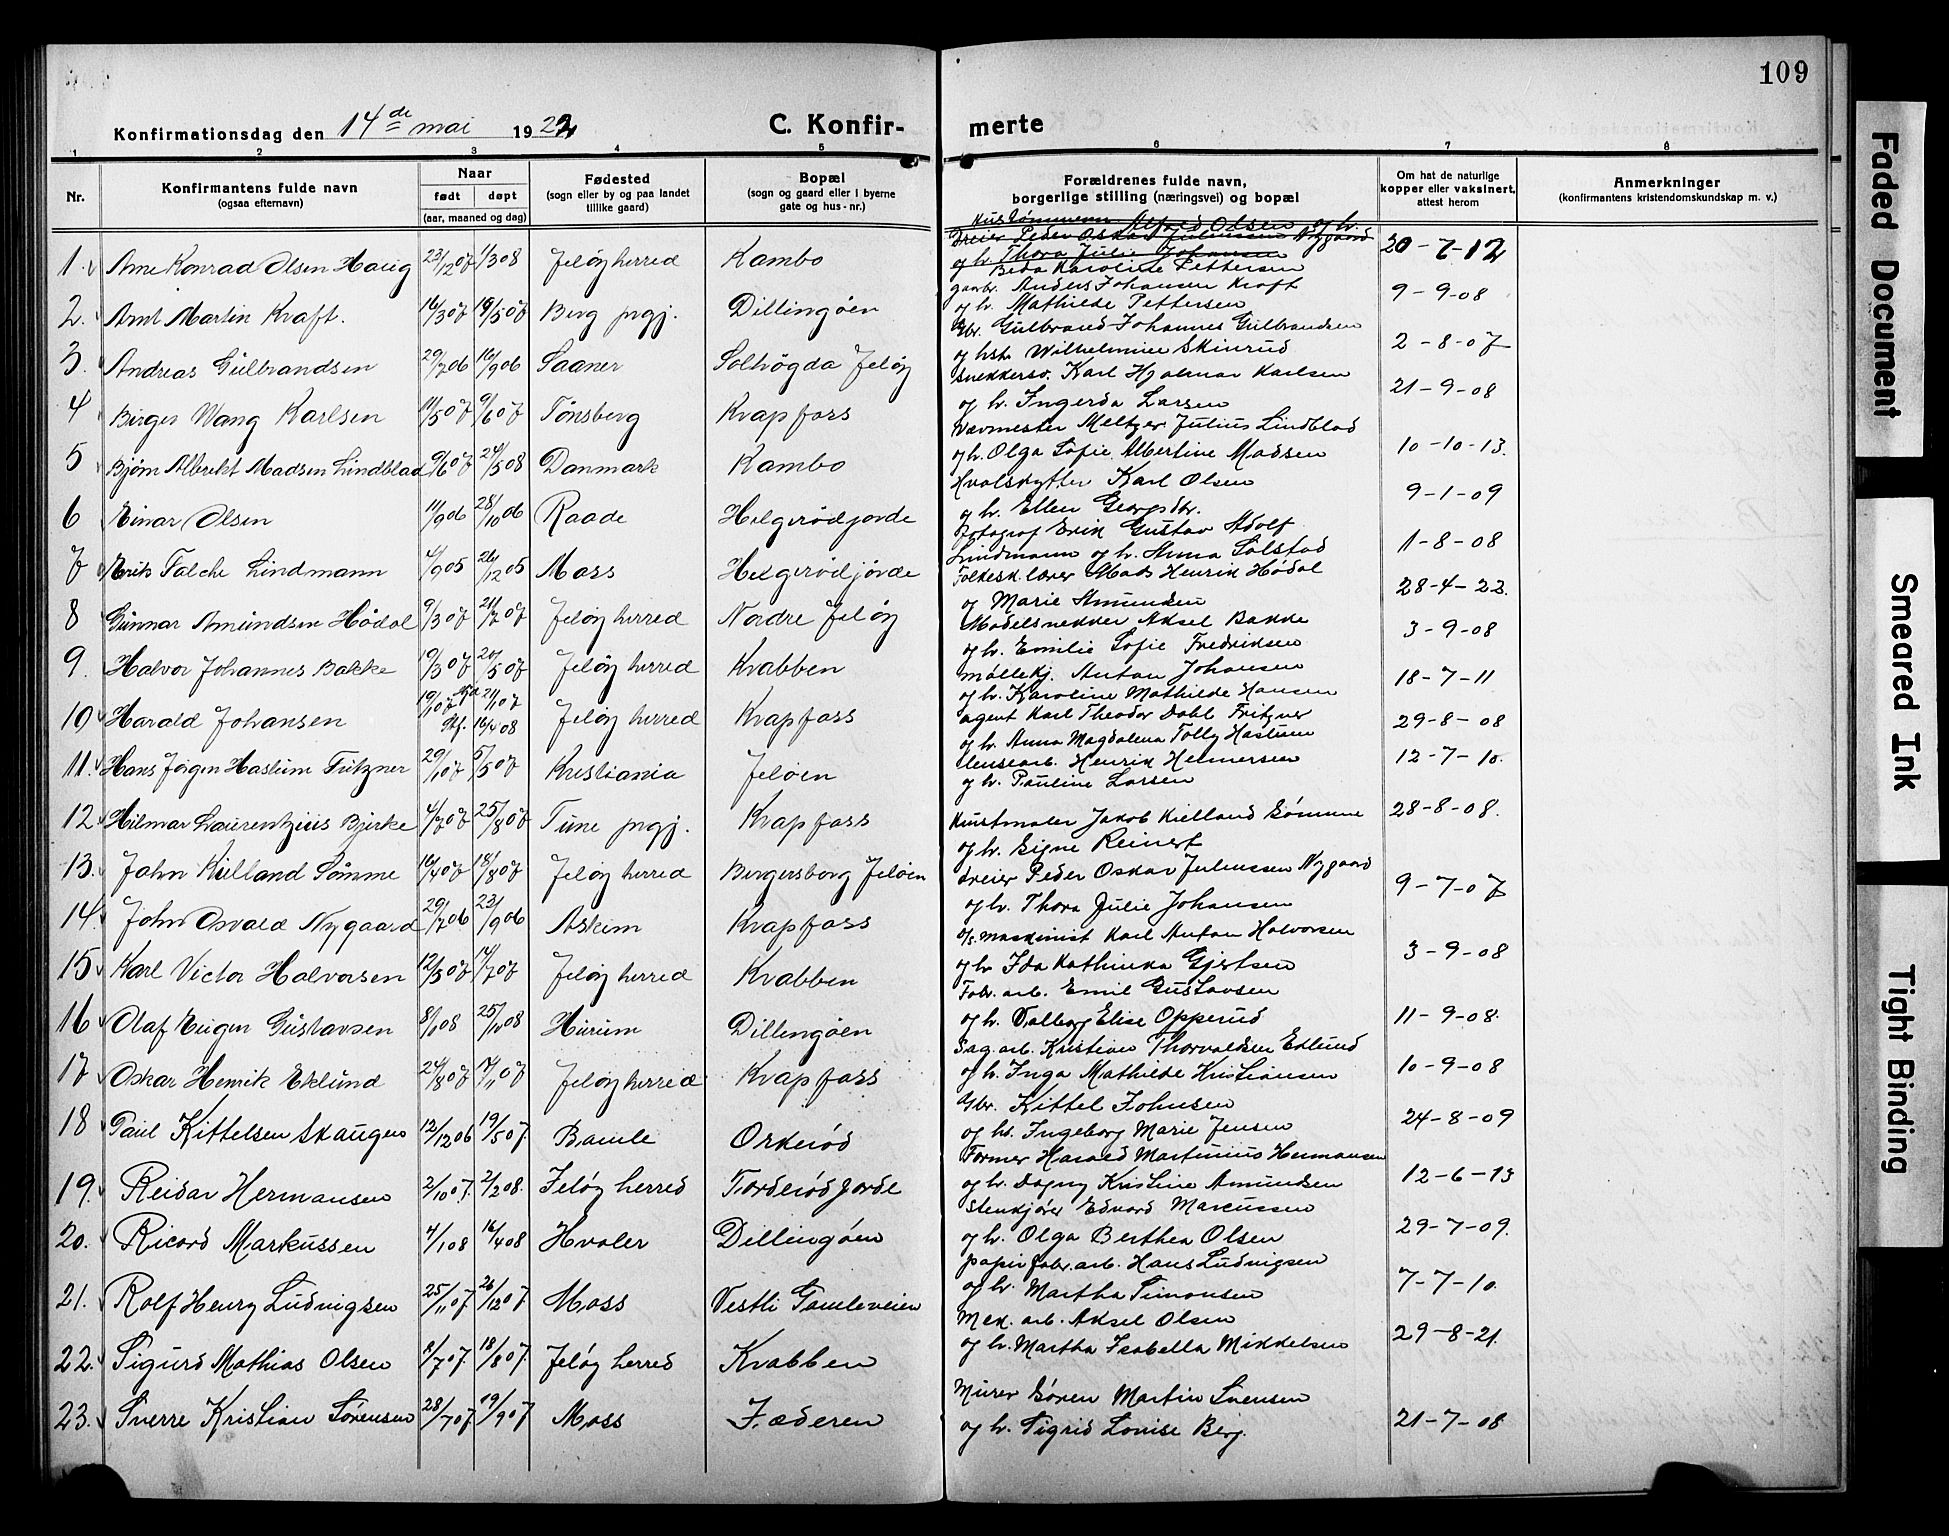 109
Konfirmationsdag den 14de mai 1922
C. Konfir-
merte
1 2 3 4 5 6 7 8
Nr.
Konfirmantens fulde navn
(ogsaa efternavn)
Naar
født døpt
(aar, maaned og dag)
Fødested
(sogn eller by og paa landet
tillike gaard)
Bopæl
(sogn og gaard eller i byerne
gate og hus-nr.)
Forældrenes fulde navn,
borgerlige stilling (næringsvei) og bopæl
Om hat de naturlige
kopper eller vaksinert,
attest herom
Anmerkninger
(konfirmantens kristendomskundskap m. v.)
Alfred Olsen og h.
Dreier Peder Oskar Juliussen Nygaard
og h. Thora Julie Johansen
Beda Karoline Pettersen
1. Arne Konrad Olsen Haug 23/12 07 1/3 08 Jeløy herred Kambo 20-7-12
gaarbr. Anders Johansen Kraft
og h. Mathilde Pettersen
2. Arnt Martin Kraft. 16/3 07 19/5 07 Berg prgj. Dillingøen 9-9-08
Gbr. Gulbrand Johannes Gulbrandsen
og hst. Wilhelmine Skinrud
3. Andreas Gulbrandsen 29/7 06 16/9 06 Saaner Solhøgda Jeløy 2-8-07
Snekkersv. Karl Hjalmar Karlsen
og h. Ingerda Larsen
4 Birger Wang Karlsen 11/5 07 9/6 07 Tønsberg Krapfoss 21-9-08
Vævmester Meltzer Julius Lindblad
og h. Olga Sofie Albertine Madsen
5 Bjørn Albrekt Madsen Lindblad 9/6 07 24/5 08 Danmark Kambo 10-10-13.
Hvalskytter Karl Olsen
og h. Ellen Georgsdtr.
6 Einar Olsen 11/9 06 28/10 06 Raade Helgerødjorde 9-1-09
Fotograf Erik Gustav Adolf
Lindmann og h. Anna Solstad
7 Erik Falche Lindmann 4/9 05 26/12 05 Moss Helgerødjorde 11-8-08
Folkesk.lærer Mads Henrik Hødal
og Marie Amundsen
8 Gunnar Amundsen Hødal 9/3 07 21/7 07 Jeløy herred Nordre Jeløy 28-4-22.
Modelsnekker Aksel Bakke
og h. Emilie Sofie Fredriksen
9. Halvor Johannes Bakke 19/3 07 20/5 07 Jeløy herred Krabben 3-9-08
møllekj. Anton Johansen
og h. Karoline Mathilde Hansen
10 Harald Johansen 19/10 07 21/10 7 Stf. 16/4 08 Jeløy herred Krapfoss 18-7-11
agent Karl Theodor Dahl Fritzner
og h. Anna Magdalena Tolly Hastum
11. Hans Jörgen Hastum Fritzner 29/1 07 5/5 07 Kristiania Jeløen 29-8-08
Henrik Helmersen
og h. Pauline Larsen
12 Hilmar Laurentzius Bjerke 4/7 07 25/8 07 Tune prgj. Krapfoss 12-7-10.
Kunstmaler Jakob Kielland Sømme
og h. Signe Reinert
13. John Kielland Sømme 16/4 07 18/8 07 Jeløy herred Bergersborg Jeløen 28-8-08.
Dreier Peder Oskar Juliussen Nygaard
og h. Thora Julie Johansen
14. John Osvald Nygaard 29/7 06 23/9 06 Askim Krapfoss 9-7-07
maskinist Karl Anton Halvorsen
og h Ida Kathinka Gjertsen
15 Karl Victor Halvorsen 12/5 07 14/7 07 Jeløy herred Krabben 3-9-08
Fabr. arb. Emil Gustavsen
og h. Valborg Elise Opperud
16 Olaf Eugen Gustavsen 8/1 08 25/10 08 Hurum Dillingøen 11-9-08.
Sag.arb. Kristian Thorvaldsen Edlund
og h. Inga Mathilde Kristiansen
17 Oskar Henrik Eklund 24/8 07 17/11 07 Jeløy herred Krapfoss 10-9-08
Gbr. Kittel Johnsen
og hs. Ingeborg Marie Jensen
18 Paul Kittelsen Skaugen 12/12 06 19/5 07. Bamle Orkerød 24-8-09
Former Harald Martinius Hermansen
og h. Dagny Kristine Amundsen
19. Reidar Hermansen 2/10 07. 2/2 08. Jeløy herred Torderødjorde 12-6-13
Stenkjører Edvard Marcussen
og h. Olga Berthea Olsen
20. Ricard Markussen 4/1 08 16/4 08 Hvaler Dillingøen 29-7-09.
papirfabr.arb. Hans Ludvigsen
og h. Martha Simonsen
21. Rolf Henry Ludvigsen 25/11 07. 26/12 07. Moss Vestli Gamleveien 7-7-10.
Mek. arb. Aksel Olsen
og h. Martha Isabella Mikkelsen
22. Sigurd Mathias Olsen 8/7 07. 18/8 07. Jeløy herred Krabben 29-8-21.
Murer Søren Martin Svensen
og h. Sigrid Lovise Berg.
23. Sverre Kristian Sørensen 28/7 07. 19/9 07 Moss Fæderen 21-7-08
Faded Document
Smeared Ink
Tight Binding